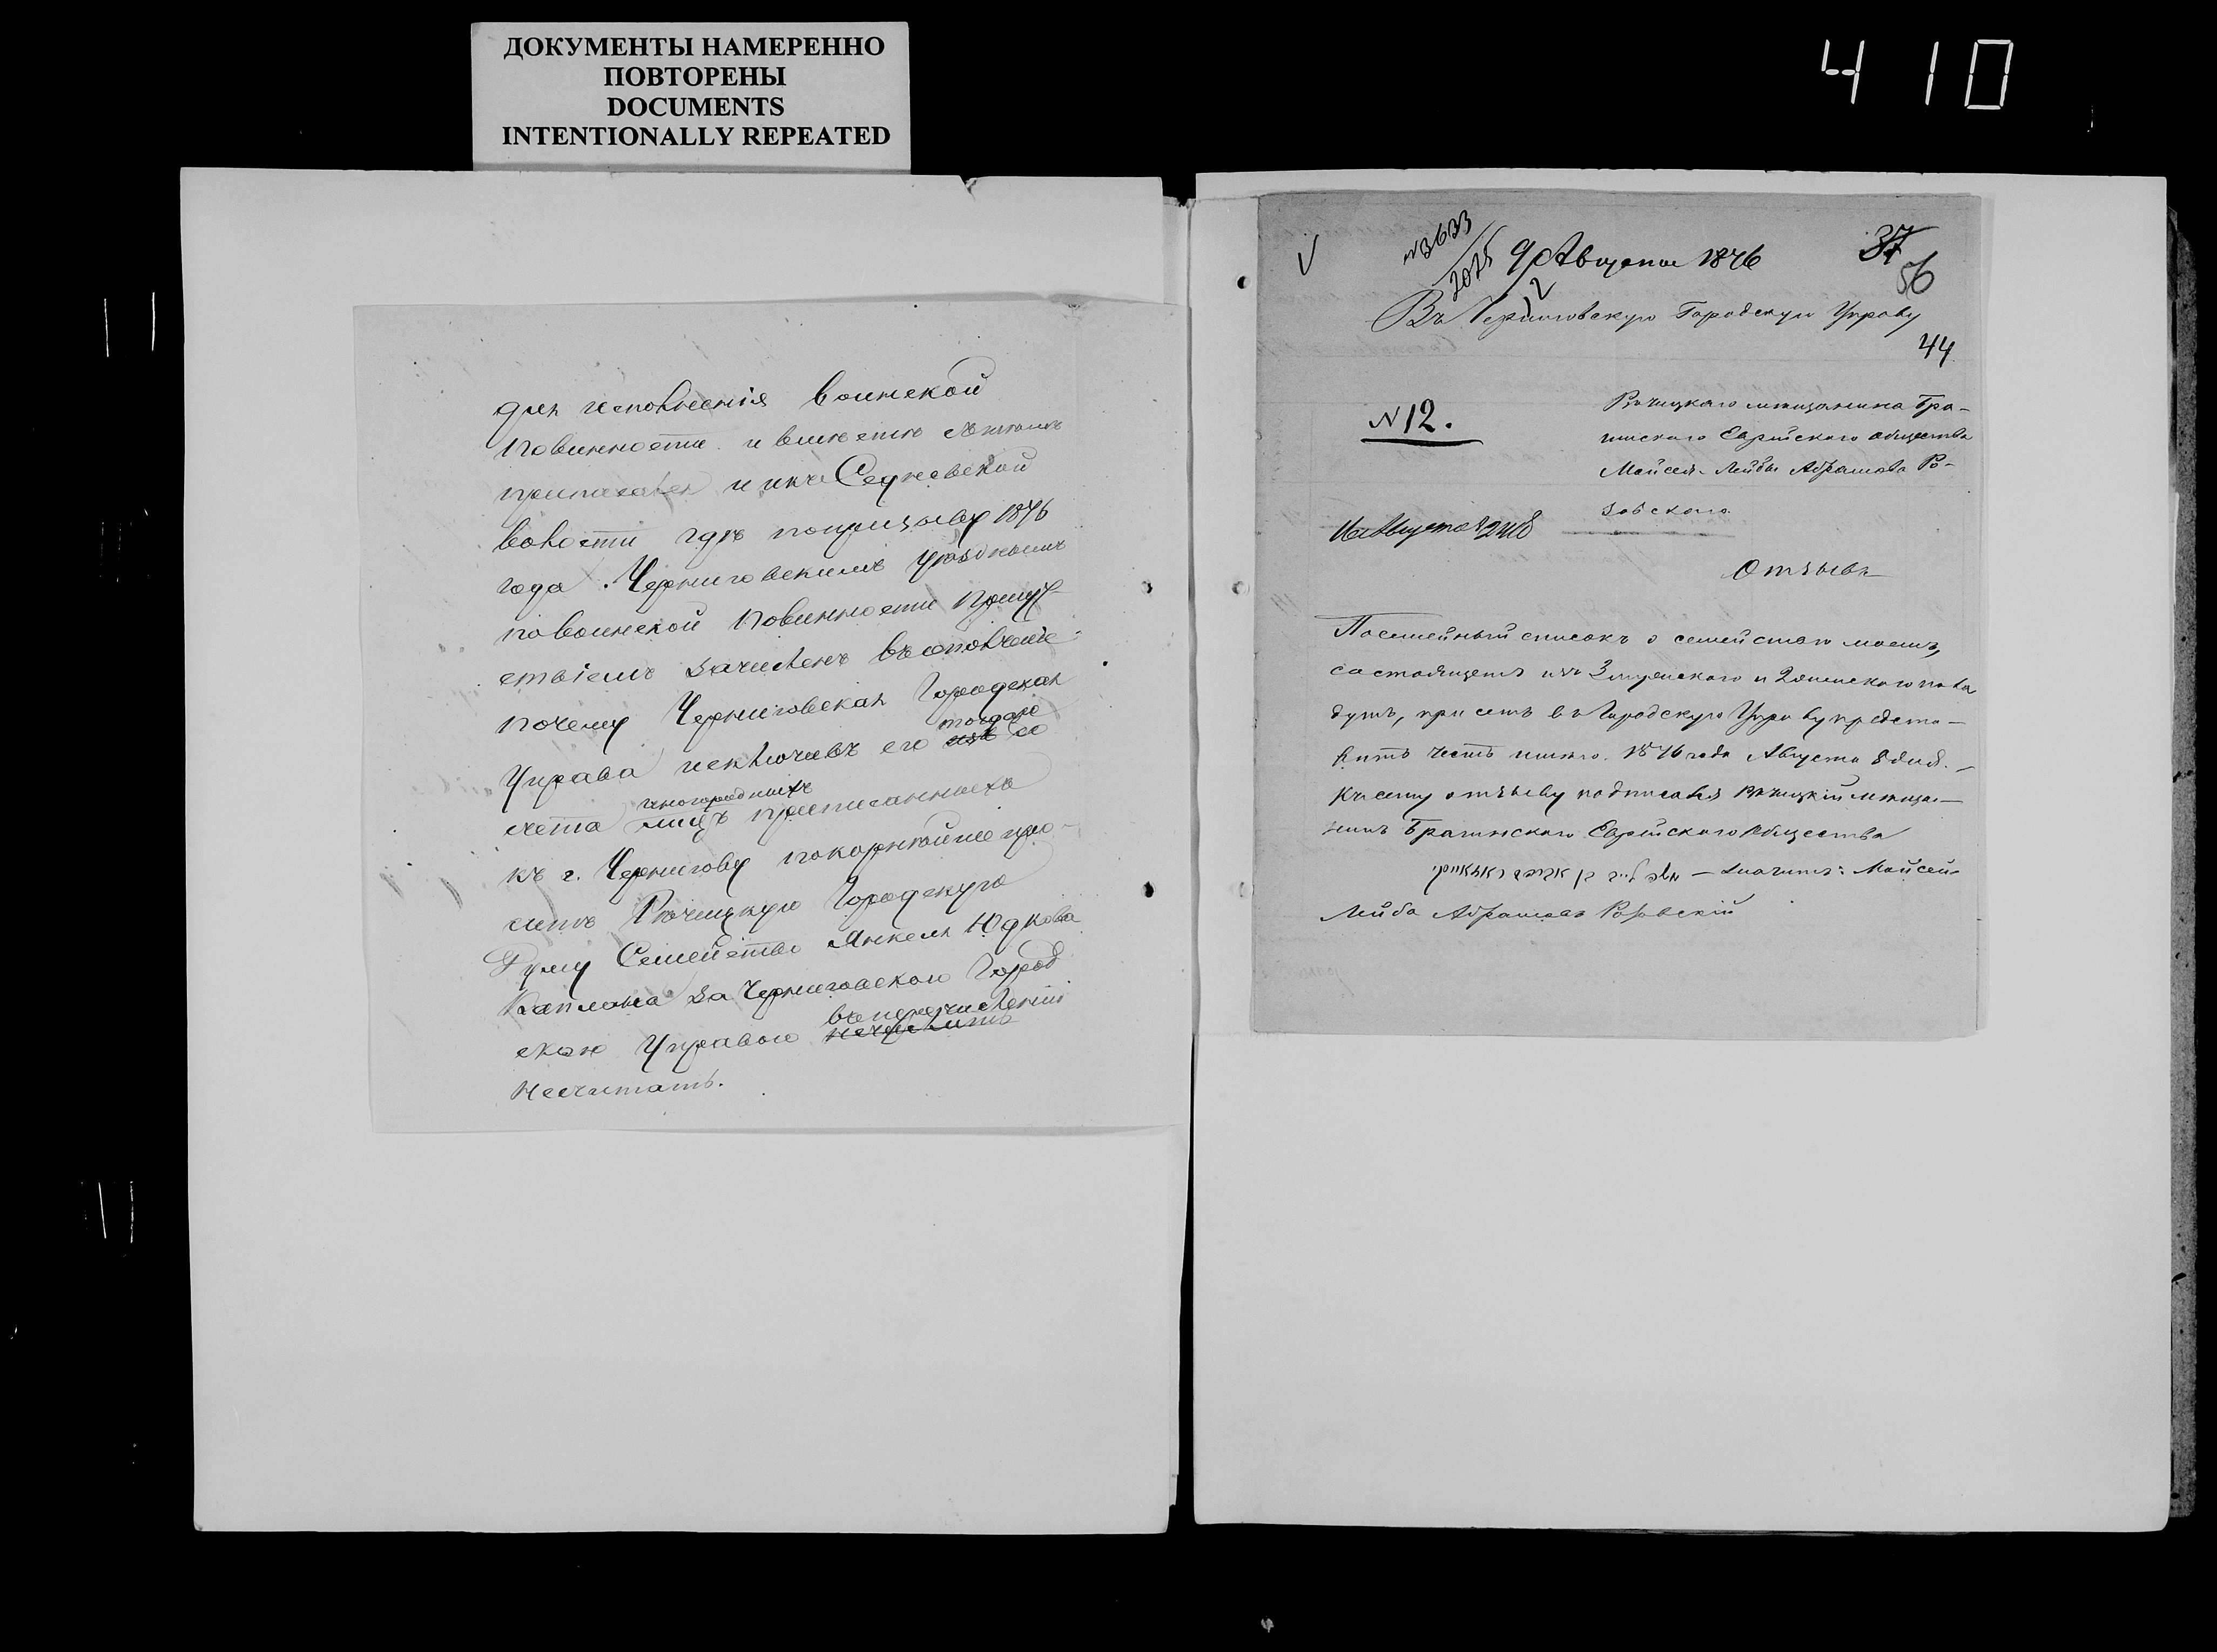 ДОКУМЕНТЫ НАМЕРЕННО
ПОВТОРЕНЫ
DOCUMENTS
INTENTIONALLY REPEATED
410
для исполненія воинской
повинности и
приписался и къ Седневской
волости гдѣ по призыву 1876
года Черниговскимъ уѣзднымъ
по воинской повинности присут-
ствіемъ зачисленъ въ ополченіе
почему Черниговская Городская
Управа исключивъ его изъ
счета иногородныхъ лицъ приписанныхъ
къ г. Чернигову покорнѣйше про-
ситъ Рѣчицкую Городскую
Думу Семейство Янкеля Юдкова
Каплана за Черниговскою Город
скою Управою въ перечисленіи
несчитать.
№ 3633
2025
9 Августа 1876
12
37
56
Въ Черниговскую Городскую Управу
44
№ 12.
Рѣчицкаго мѣщанина Бра-
гинскаго Еврейскаго общества
Мойсея-Лейбы Абрамова Ро-
зовскаго
Августа 8 дня
Отзывъ
Посемейный списокъ о семействѣ моемъ,
состоящемъ изъ 3 мужескаго и 2 женскаго пола
душъ, при семъ въ Городскую Управу предста-
вить честь имѣю. 1876 года Августа 8 дня. —
Къ сему отзыву подписался Рѣчицкій мѣща-
нинъ Брагинскаго Еврейскаго Общества
— значитъ: Мойсей
Лейба Абрамовъ Розовскій